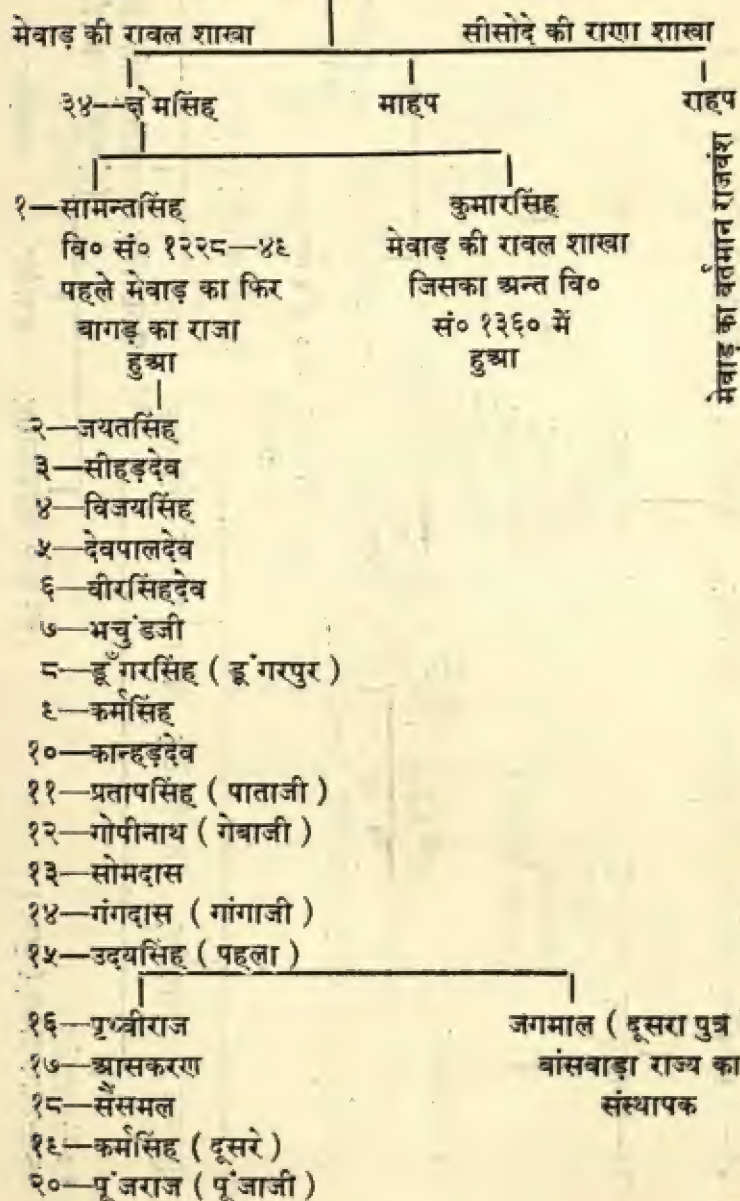 मेवाड़ की रावल शाखा सीसोदे की राणा शाखा
३४—क्षेमसिंह माहप राहप
मेवाड़ का वर्तमान राजवंश
१—सामन्तसिंह
वि० सं० १२२८—४६
पहले मेवाड़ का फिर
बागड़ का राजा
हुआ
कुमारसिंह
मेवाड़ की रावल शाखा
जिसका अन्त वि०
सं० १३६० में
हुआ
२—जयतसिंह
३—सीहड़देव
४—विजयसिंह
५—देवपालदेव
६—वीरसिंहदेव
७—भचुंडजी
८—डूँगरसिंह ( डूंगरपुर )
९—कर्मसिंह
१०—कान्हड़देव
११—प्रतापसिंह ( पाताजी )
१२—गोपीनाथ ( गेबाजी )
१३—सोमदास
१४—गंगदास ( गांगाजी )
१५—उदयसिंह ( पहला )
१६—पृथ्वीराज
१७—आसकरण
१८—सैंसमल
१९—कर्मसिंह ( दूसरे )
२०—पूंजराज ( पूंजाजी )
जगमाल ( दूसरा पुत्र
बांसवाड़ा राज्य का
संस्थापक